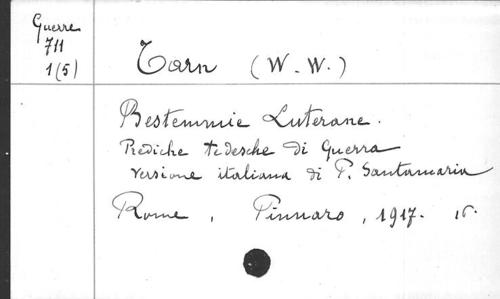 Guerre
711
1(5)
Tarn (W. W.)
Bestemmie Luterane.
Prediche tedesche di Guerra
versione italiana di P. Santamaria
Rome, Pinnaro, 1917.